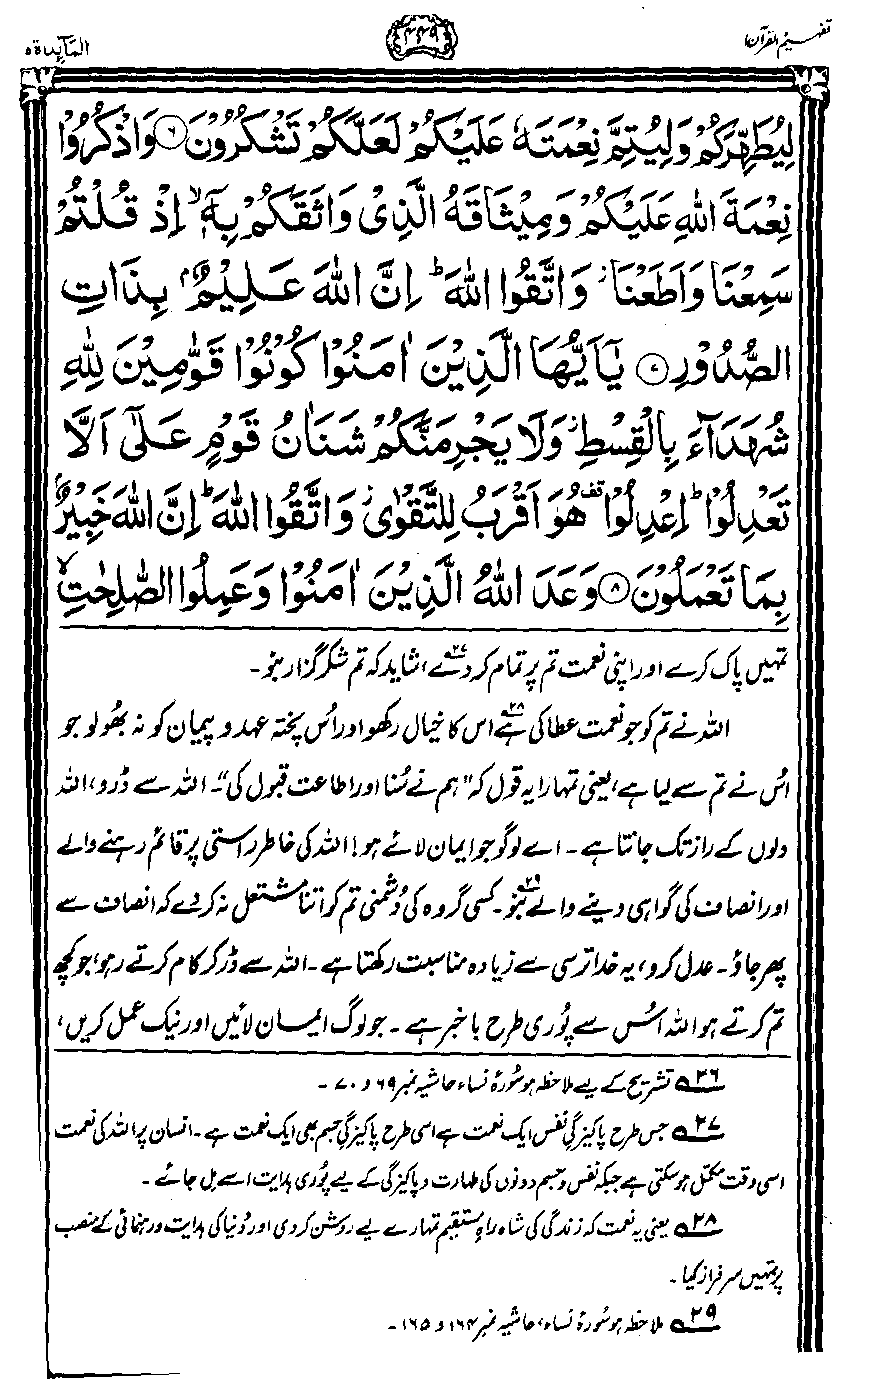 تفہیم القرآن
۴۴۹
المآئدۃ ۵
لِيُطَهِّرَكُمْ وَلِيُتِمَّ نِعْمَتَهٗ عَلَيْكُمْ لَعَلَّكُمْ تَشْكُرُوْنَ ۶ وَاذْكُرُوْا
نِعْمَةَ اللّٰهِ عَلَيْكُمْ وَمِيْثَاقَهُ الَّذِيْ وَاثَقَكُمْ بِهٖٓ ۙ اِذْ قُلْتُمْ
سَمِعْنَا وَاَطَعْنَا ۡ وَاتَّقُوا اللّٰهَ ؕ اِنَّ اللّٰهَ عَلِيْمٌۢ بِذَاتِ
الصُّدُوْرِ ۷ يٰۤاَيُّهَا الَّذِيْنَ اٰمَنُوْا كُوْنُوْا قَوّٰمِيْنَ لِلّٰهِ
شُهَدَآءَ بِالْقِسْطِ ۡ وَلَا يَجْرِمَنَّكُمْ شَنَاٰنُ قَوْمٍ عَلٰٓى اَلَّا
تَعْدِلُوْا ؕ اِعْدِلُوْا ۟ هُوَ اَقْرَبُ لِلتَّقْوٰى ۡ وَاتَّقُوا اللّٰهَ ؕ اِنَّ اللّٰهَ خَبِيْرٌۢ
بِمَا تَعْمَلُوْنَ ۸ وَعَدَ اللّٰهُ الَّذِيْنَ اٰمَنُوْا وَعَمِلُوا الصّٰلِحٰتِ ۙ
تمہیں پاک کرے اور اپنی نعمت تم پر تمام کر دے،۲۷ شاید کہ تم شکر گزار بنو۔
اللہ نے تم کو جو نعمت عطا کی ہے۲۸ اس کا خیال رکھو اور اُس پختہ عہد و پیمان کو نہ بھُولو جو
اُس نے تم سے لیا ہے، یعنی تمہارا یہ قول کہ "ہم نے سُنا اور اطاعت قبول کی"۔ اللہ سے ڈرو، اللہ
دلوں کے راز تک جانتا ہے۔ اے لوگو جو ایمان لائے ہو! اللہ کی خاطر راستی پر قائم رہنے والے
اور انصاف کی گواہی دینے والے بنو۲۹۔ کسی گروہ کی دُشمنی تم کو اتنا مشتعل نہ کر دے کہ انصاف سے
پھر جاؤ۔ عدل کرو، یہ خدا ترسی سے زیادہ مناسبت رکھتا ہے۔ اللہ سے ڈر کر کام کرتے رہو، جو کچھ
تم کرتے ہو اللہ اُس سے پُوری طرح باخبر ہے۔ جو لوگ ایمان لائیں اور نیک عمل کریں،
۲۶ تشریح کے لیے ملاحظہ ہو سُورۂ نساء حاشیہ نمبر ۶۹ و ۷۰۔
۲۷ جس طرح پاکیزگیِ نفس ایک نعمت ہے اسی طرح پاکیزگیِ جسم بھی ایک نعمت ہے۔ انسان پر اللہ کی نعمت
اسی وقت مکمّل ہو سکتی ہے جبکہ نفس و جسم دونوں کی طہارت و پاکیزگی کے لیے پُوری ہدایت اسے مل جائے۔
۲۸ یعنی یہ نعمت کہ زندگی کی شاہ راہِ مستقیم تمہارے لیے روشن کر دی اور دُنیا کی ہدایت و رہنمائی کے منصب
پر تمہیں سرفراز کیا۔
۲۹ ملاحظہ ہو سُورۂ نساء، حاشیہ نمبر ۱۶۴ و ۱۶۵۔